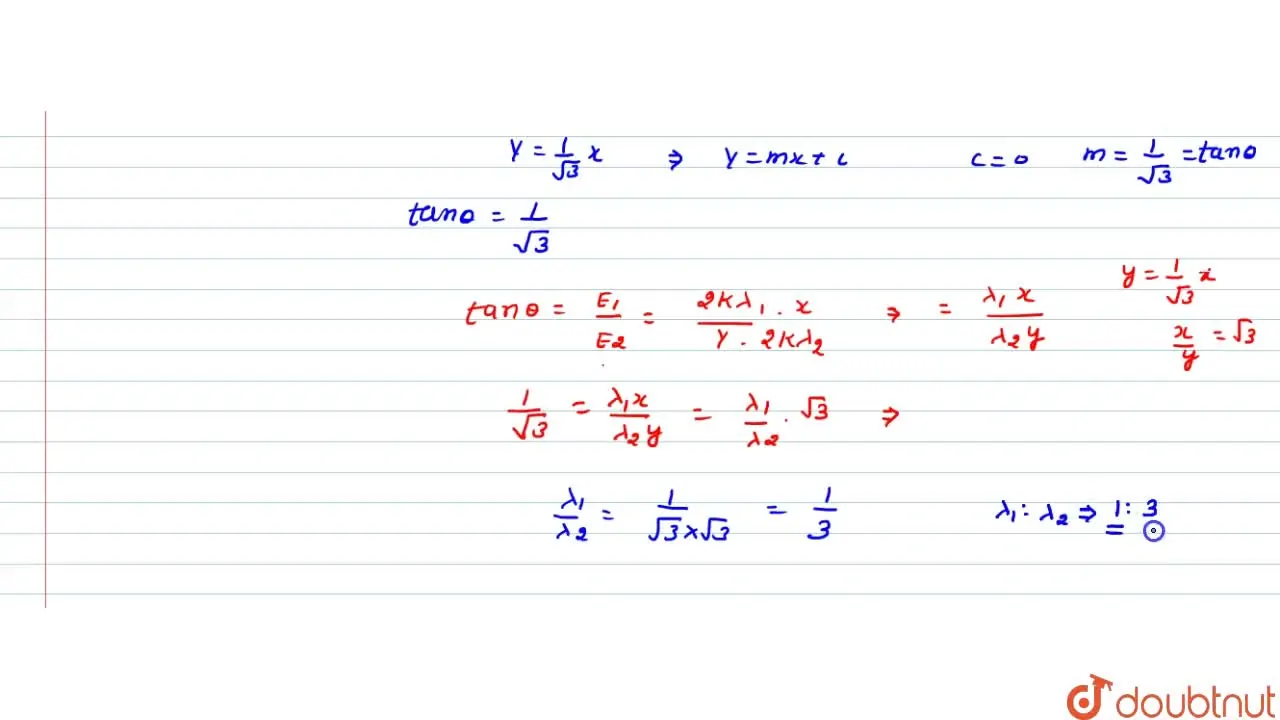 Y = 1/√3 x ⇒ Y = mx + c c = 0 m = 1/√3 = tanθ
tanθ = 1/√3
tanθ = E1/E2 = 2Kλ1 . x / Y . 2Kλ2 ⇒ = λ1 x / λ2 y
y = 1/√3 x
x/y = √3
1/√3 = λ1x / λ2y = λ1/λ2 . √3 ⇒
λ1/λ2 = 1/√3×√3 = 1/3 λ1 : λ2 ⇒ 1 : 3
doubtnut